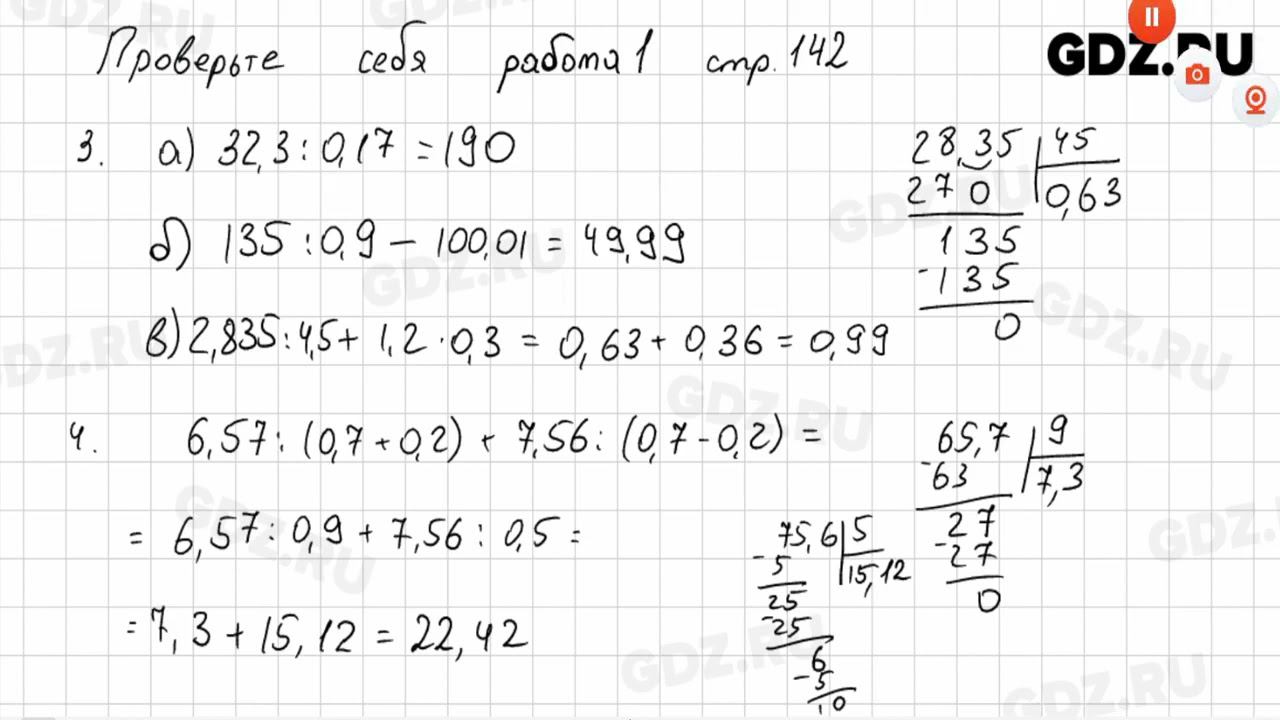 Проверьте себя работа 1 стр. 142
GDZ.RU
3. а) 32,3 : 0,17 = 190
б) 135 : 0,9 – 100,01 = 49,99
в) 2,835 : 4,5 + 1,2 · 0,3 = 0,63 + 0,36 = 0,99
28,35 45
270 0,63
135
-135
0
4. 6,57 : (0,7 + 0,2) + 7,56 : (0,7 - 0,2) =
= 6,57 : 0,9 + 7,56 : 0,5 =
= 7,3 + 15,12 = 22,42
75,6 5
-5 15,12
25
-25
6
-5
10
65,7 9
-63 7,3
27
-27
0
GDZ.RU
GDZ.RU
GDZ.RU
GDZ.RU
GDZ.RU
GDZ.RU
GDZ.RU
GDZ.RU
GDZ.RU
GDZ.RU
GDZ.RU